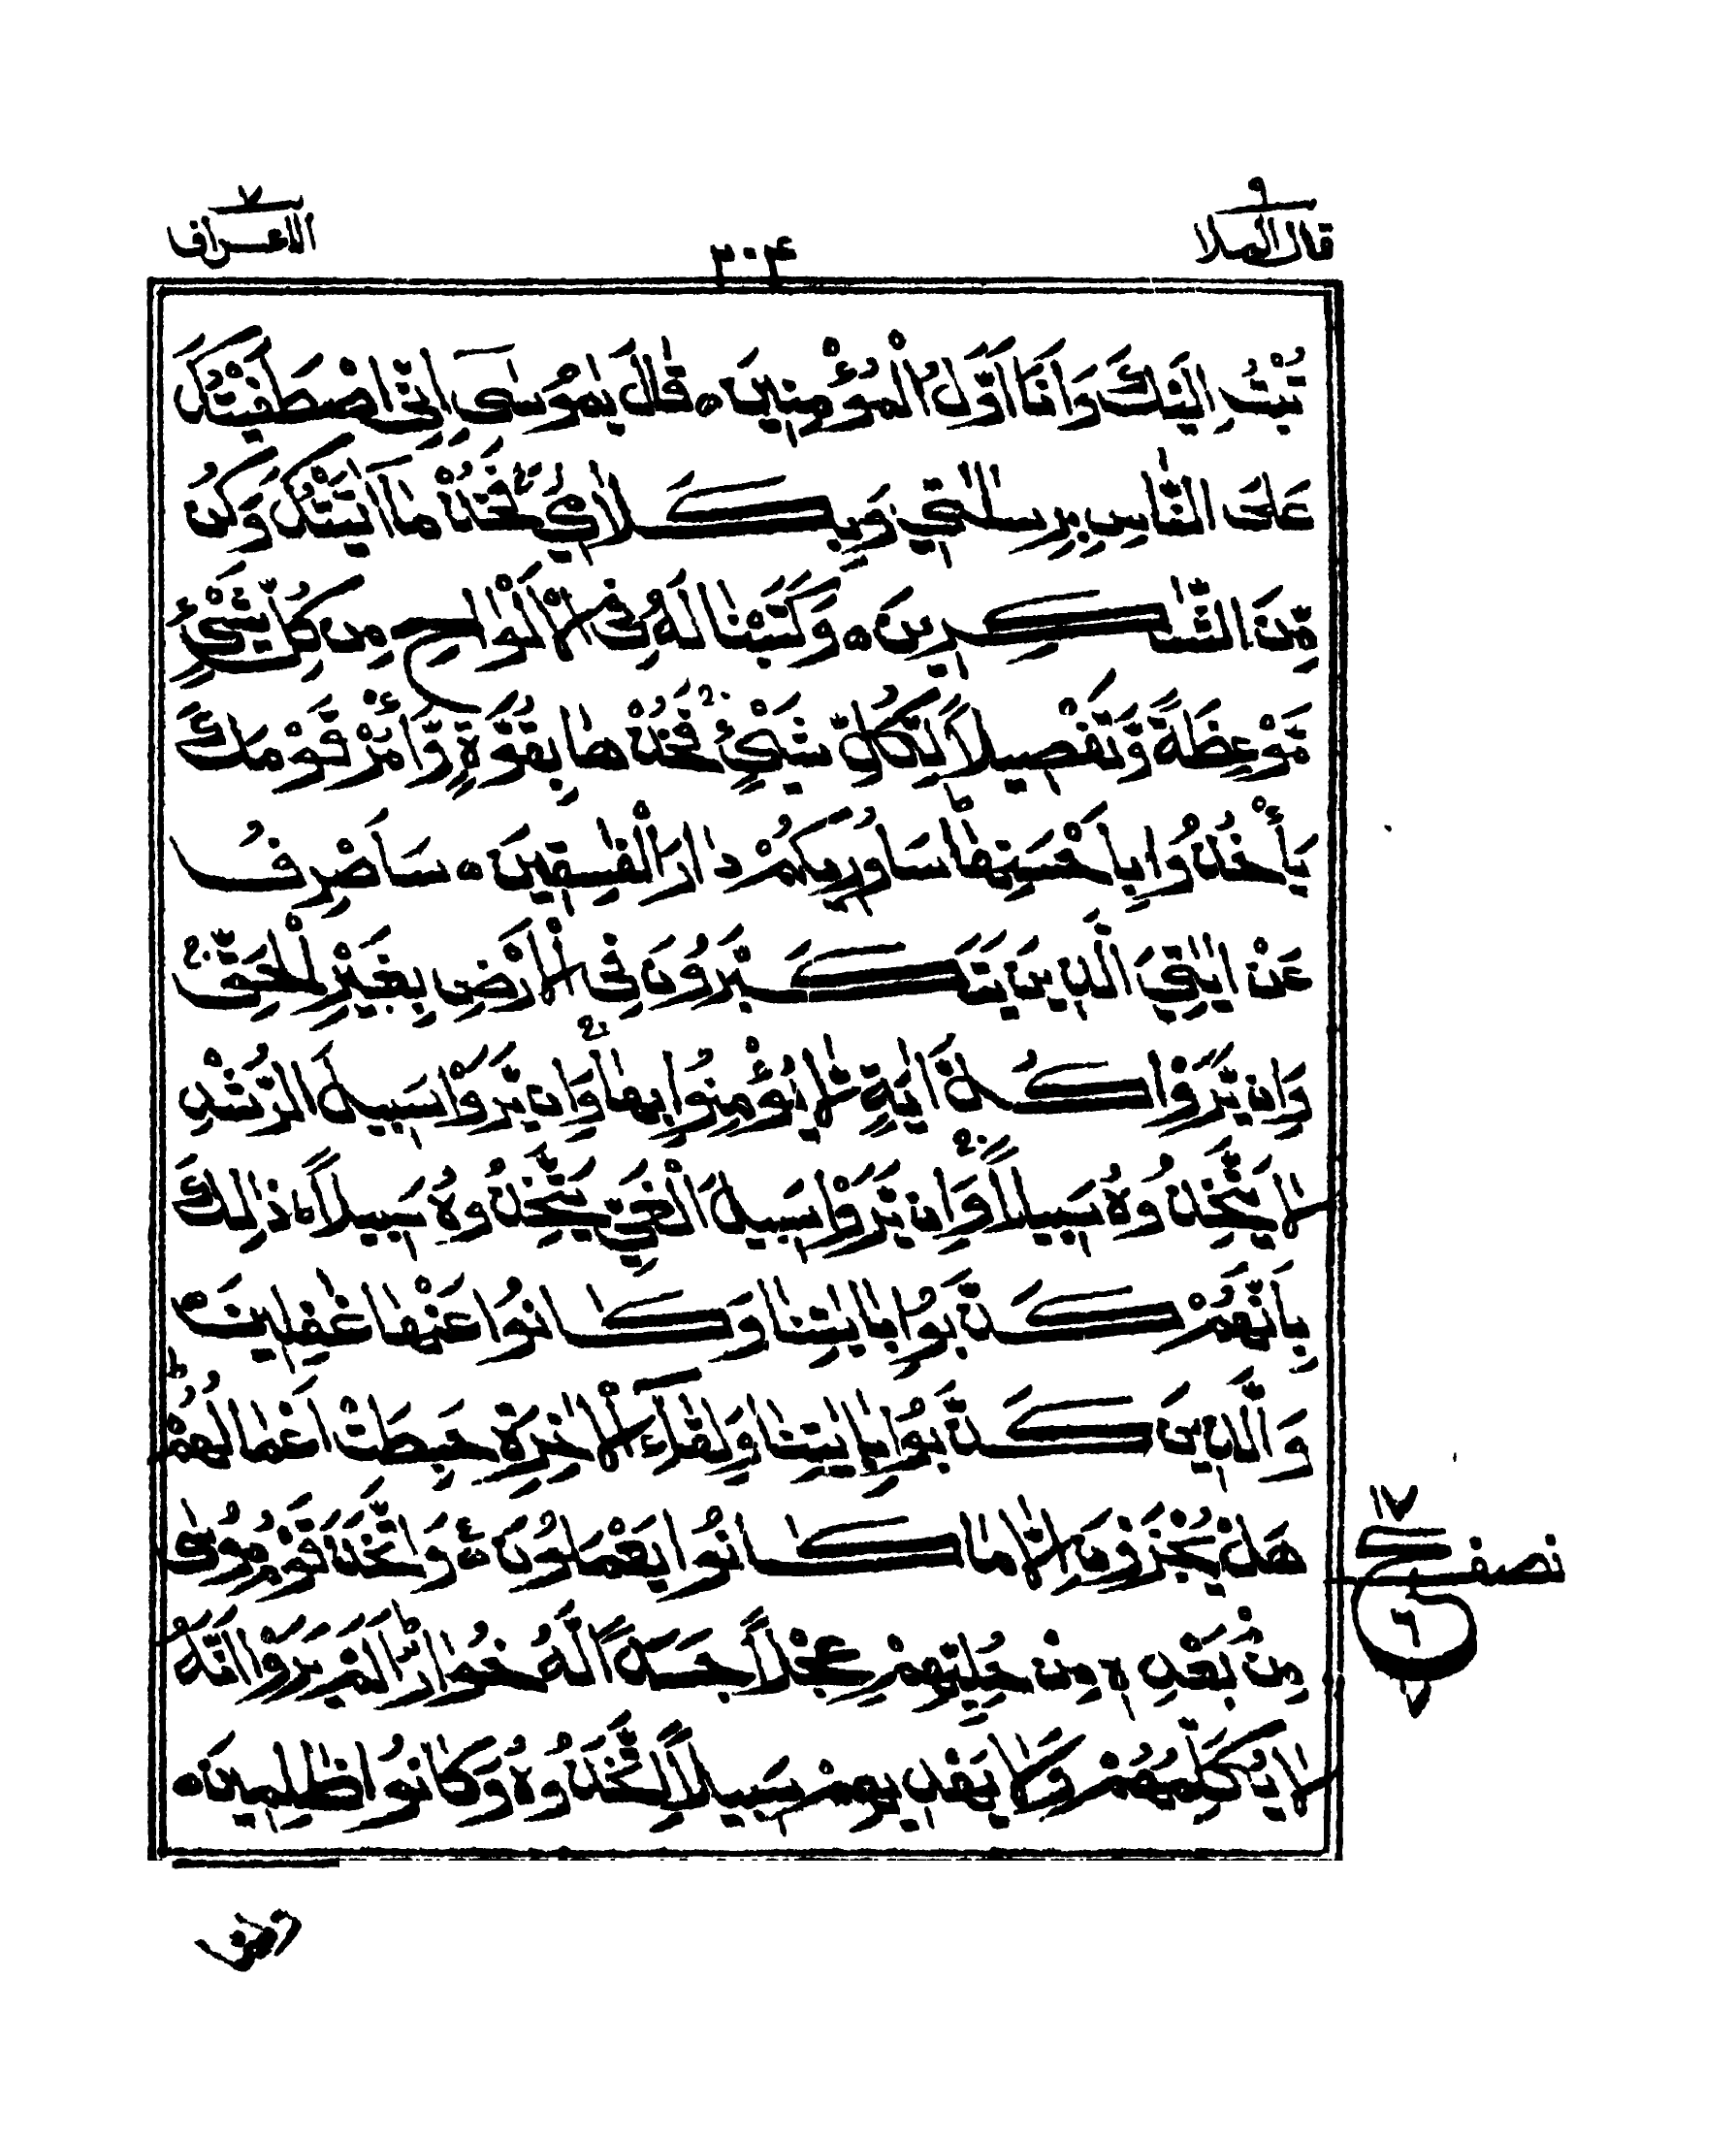 قال الملا ٩
٢٠٤
الاعراف ٧
تُبْتُ اِلَيْكَ وَاَنَا اَوَّلُ الْمُؤْمِنِيْنَ ۝ قَالَ يٰمُوْسٰٓى اِنِّى اصْطَفَيْتُكَ
عَلَى النَّاسِ بِرِسٰلٰتِىْ وَبِكَلَامِىْ ۖ فَخُذْ مَآ اٰتَيْتُكَ وَكُنْ
مِّنَ الشّٰكِرِيْنَ ۝ وَكَتَبْنَا لَهٗ فِى الْاَلْوَاحِ مِنْ كُلِّ شَىْءٍ
مَّوْعِظَةً وَّتَفْصِيْلًا لِّكُلِّ شَىْءٍ ۚ فَخُذْهَا بِقُوَّةٍ وَّاْمُرْ قَوْمَكَ
يَاْخُذُوْا بِاَحْسَنِهَا ؕ سَاُورِيْكُمْ دَارَ الْفٰسِقِيْنَ ۝ سَاَصْرِفُ
عَنْ اٰيٰتِىَ الَّذِيْنَ يَتَكَبَّرُوْنَ فِى الْاَرْضِ بِغَيْرِ الْحَقِّ ؕ
وَاِنْ يَّرَوْا كُلَّ اٰيَةٍ لَّا يُؤْمِنُوْا بِهَا ۚ وَاِنْ يَّرَوْا سَبِيْلَ الرُّشْدِ
لَا يَتَّخِذُوْهُ سَبِيْلًا ۚ وَاِنْ يَّرَوْا سَبِيْلَ الْغَىِّ يَتَّخِذُوْهُ سَبِيْلًا ؕ ذٰلِكَ
بِاَنَّهُمْ كَذَّبُوْا بِاٰيٰتِنَا وَكَانُوْا عَنْهَا غٰفِلِيْنَ ۝
وَالَّذِيْنَ كَذَّبُوْا بِاٰيٰتِنَا وَلِقَآءِ الْاٰخِرَةِ حَبِطَتْ اَعْمَالُهُمْ ؕ
هَلْ يُجْزَوْنَ اِلَّا مَا كَانُوْا يَعْمَلُوْنَ ۝ وَاتَّخَذَ قَوْمُ مُوْسٰى
مِنْۢ بَعْدِهٖ مِنْ حُلِيِّهِمْ عِجْلًا جَسَدًا لَّهٗ خُوَارٌ ؕ اَلَمْ يَرَوْا اَنَّهٗ
لَا يُكَلِّمُهُمْ وَلَا يَهْدِيْهِمْ سَبِيْلًا ۘ اِتَّخَذُوْهُ وَكَانُوْا ظٰلِمِيْنَ ۝
نصف
١٧
ع
٦
٧